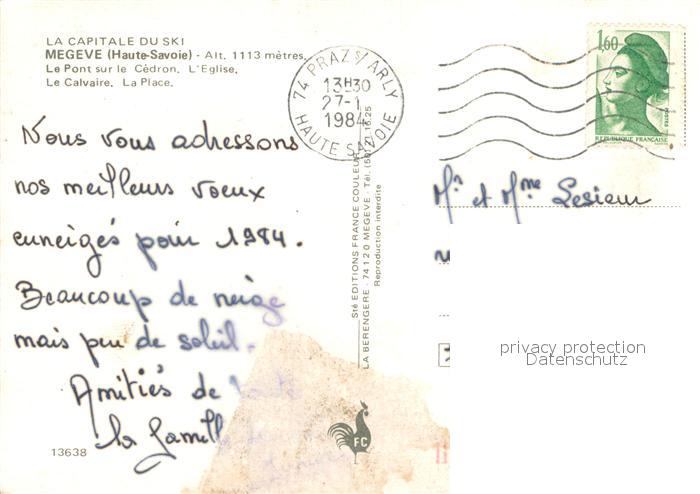 LA CAPITALE DU SKI
MEGEVE (Haute-Savoie) - Alt. 1113 mètres.
Le Pont sur le Cèdron. L'Eglise.
Le Calvaire. La Place.
74 PRAZ S/ARLY
13H30
27-1
1984
HAUTE SAVOIE
1,60
POSTES
REPUBLIQUE FRANÇAISE
Nous vous adressons
nos meilleurs voeux
enneigés pour 1984.
Beaucoup de neige
mais peu de soleil.
Amitiés de toute
la famille
13638
Sté EDITIONS FRANCE COULEUR
LA BERENGERE - 74120 MEGEVE - Tél. (50) 21.16.25
Reproduction interdite
FC
Mr et Mme Lesieur
privacy protection
Datenschutz